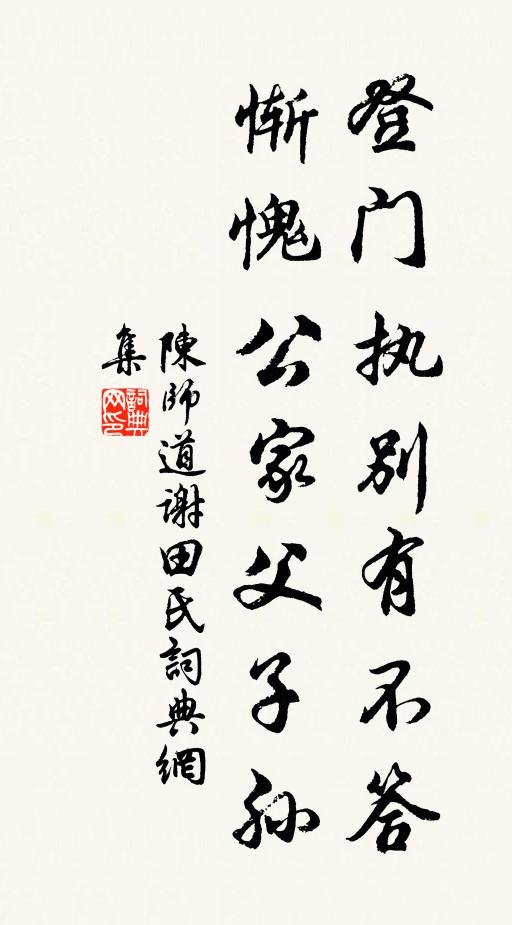 登门执别有不答
惭愧公家父子孙
陳師道謝田氏詞典網
集
詞典
网印